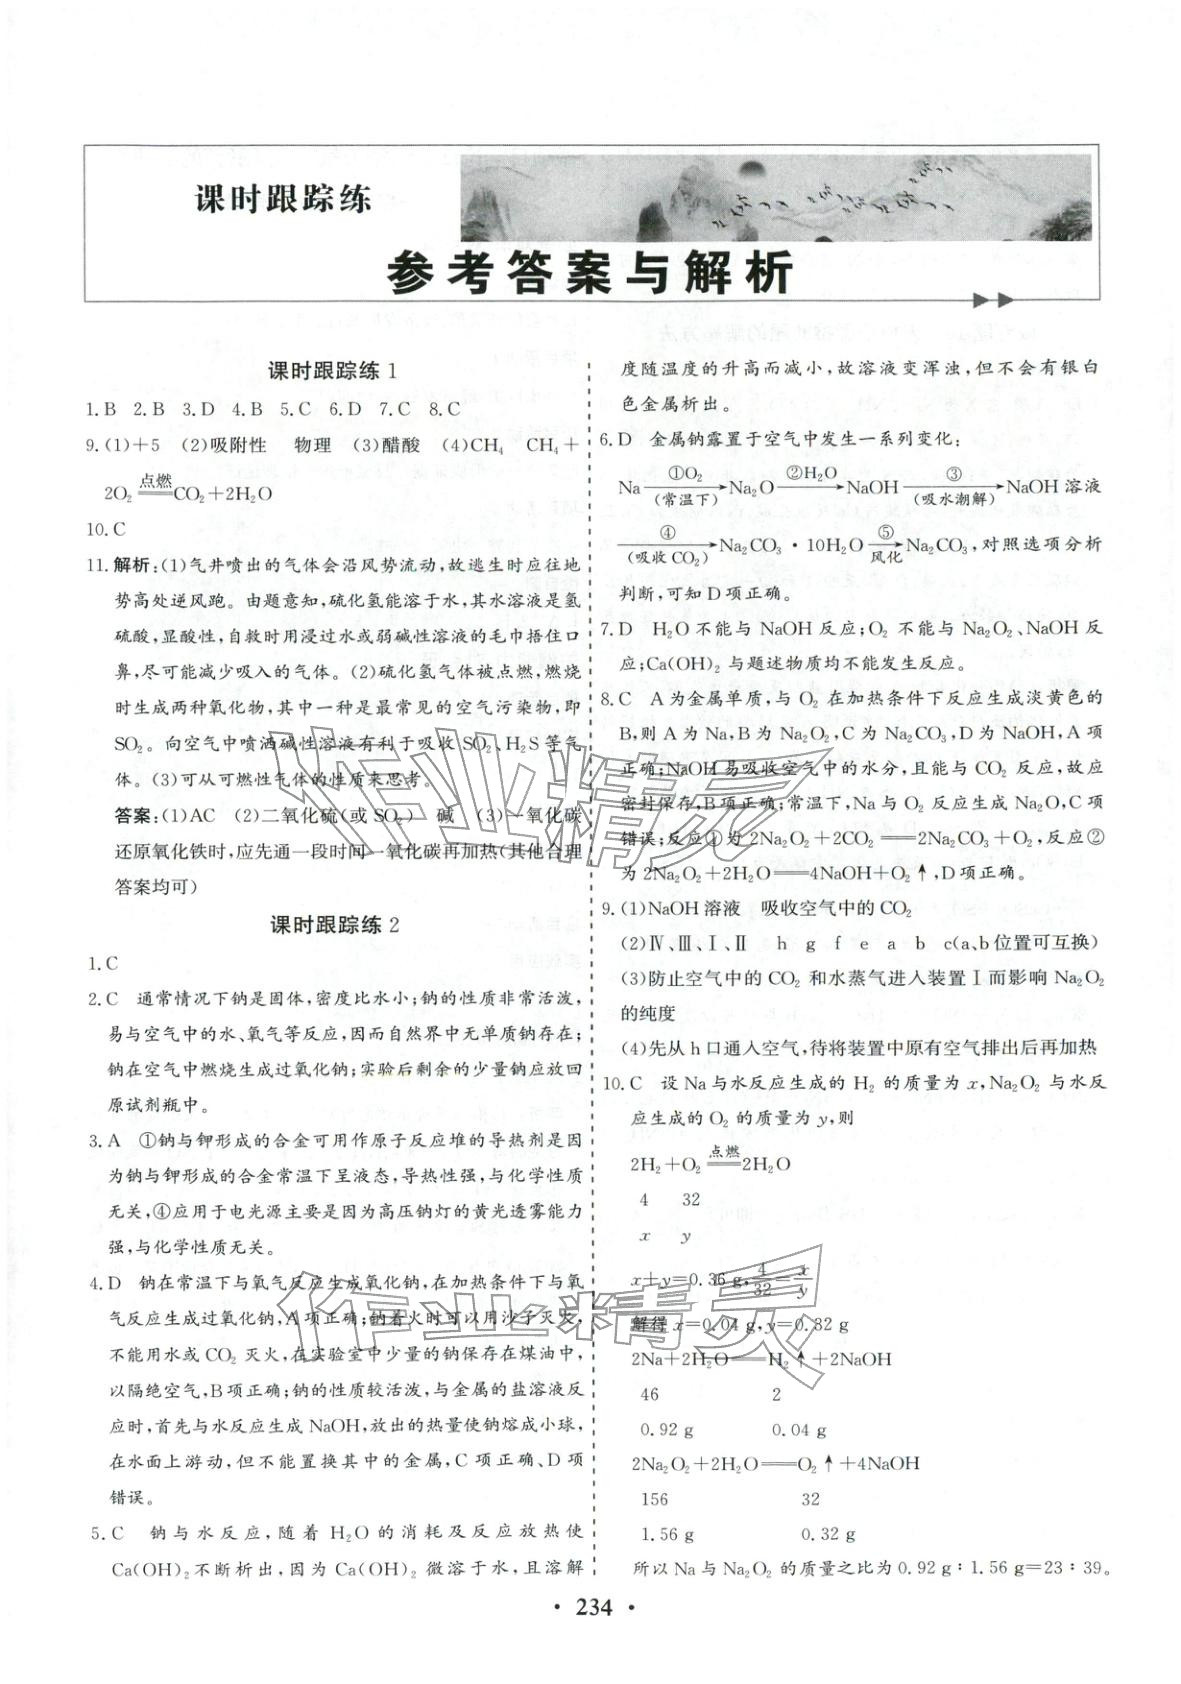 课时跟踪练
参考答案与解析
课时跟踪练 1
1.B 2.B 3.D 4.B 5.C 6.D 7.C 8.C
9.(1)+5 (2)吸附性 物理 (3)醋酸 (4)CH₄ CH₄+
2O₂ 点燃 CO₂+2H₂O
10.C
11.解析:(1)气井喷出的气体会沿风势流动,故逃生时应往地
势高处逆风跑。由题意知,硫化氢能溶于水,其水溶液是氢
硫酸,显酸性,自救时用浸过水或弱碱性溶液的毛巾捂住口
鼻,尽可能减少吸入的气体。(2)硫化氢气体被点燃,燃烧
时生成两种氧化物,其中一种是最常见的空气污染物,即
SO₂。向空气中喷洒碱性溶液有利于吸收 SO₂、H₂S 等气
体。(3)可从可燃性气体的性质来思考。
答案:(1)AC (2)二氧化硫(或 SO₂) 碱 (3)一氧化碳
还原氧化铁时,应先通一段时间一氧化碳再加热(其他合理
答案均可)
课时跟踪练 2
1.C
2.C 通常情况下钠是固体,密度比水小;钠的性质非常活泼,
易与空气中的水、氧气等反应,因而自然界中无单质钠存在;
钠在空气中燃烧生成过氧化钠;实验后剩余的少量钠应放回
原试剂瓶中。
3.A ①钠与钾形成的合金可用作原子反应堆的导热剂是因
为钠与钾形成的合金常温下呈液态,导热性强,与化学性质
无关,④应用于电光源主要是因为高压钠灯的黄光透雾能力
强,与化学性质无关。
4.D 钠在常温下与氧气反应生成氧化钠,在加热条件下与氧
气反应生成过氧化钠,A项正确;钠着火时可以用沙子灭火,
不能用水或CO₂ 灭火,在实验室中少量的钠保存在煤油中,
以隔绝空气,B项正确;钠的性质较活泼,与金属的盐溶液反
应时,首先与水反应生成 NaOH,放出的热量使钠熔成小球,
在水面上游动,但不能置换其中的金属,C 项正确、D 项
错误。
5.C 钠与水反应,随着 H₂O 的消耗及反应放热使
Ca(OH)₂ 不断析出,因为 Ca(OH)₂ 微溶于水,且溶解
度随温度的升高而减小,故溶液变浑浊,但不会有银白
色金属析出。
6.D 金属钠露置于空气中发生一系列变化:
Na ①O₂ (常温下) → Na₂O ②H₂O → NaOH ③ (吸水潮解) → NaOH 溶液
④ (吸收 CO₂) → Na₂CO₃·10H₂O ⑤ 风化 → Na₂CO₃,对照选项分析
判断,可知 D 项正确。
7.D H₂O 不能与 NaOH 反应;O₂ 不能与 Na₂O₂、NaOH 反
应;Ca(OH)₂ 与题述物质均不能发生反应。
8.C A为金属单质,与 O₂ 在加热条件下反应生成淡黄色的
B,则 A 为 Na,B 为 Na₂O₂,C 为 Na₂CO₃,D 为 NaOH,A 项
正确;NaOH 易吸收空气中的水分,且能与 CO₂ 反应,故应
密封保存,B项正确;常温下,Na与 O₂ 反应生成 Na₂O,C 项
错误;反应①为 2Na₂O₂+2CO₂══2Na₂CO₃+O₂,反应②
为 2Na₂O₂+2H₂O══4NaOH+O₂↑,D项正确。
9.(1)NaOH 溶液 吸收空气中的 CO₂
(2)Ⅳ、Ⅲ、Ⅰ、Ⅱ h g f e a b c(a、b 位置可互换)
(3)防止空气中的 CO₂ 和水蒸气进入装置Ⅰ而影响 Na₂O₂
的纯度
(4)先从 h 口通入空气,待将装置中原有空气排出后再加热
10.C 设 Na 与水反应生成的 H₂ 的质量为 x,Na₂O₂ 与水反
应生成的 O₂ 的质量为 y,则
2H₂+O₂ 点燃 2H₂O
4 32
x y
x+y=0.36 g,4/32=x/y
解得 x=0.04 g,y=0.32 g
2Na+2H₂O══H₂↑+2NaOH
46 2
0.92 g 0.04 g
2Na₂O₂+2H₂O══O₂↑+4NaOH
156 32
1.56 g 0.32 g
所以 Na 与 Na₂O₂ 的质量之比为 0.92 g∶1.56 g=23∶39。
作业精灵
作业精灵
• 234 •